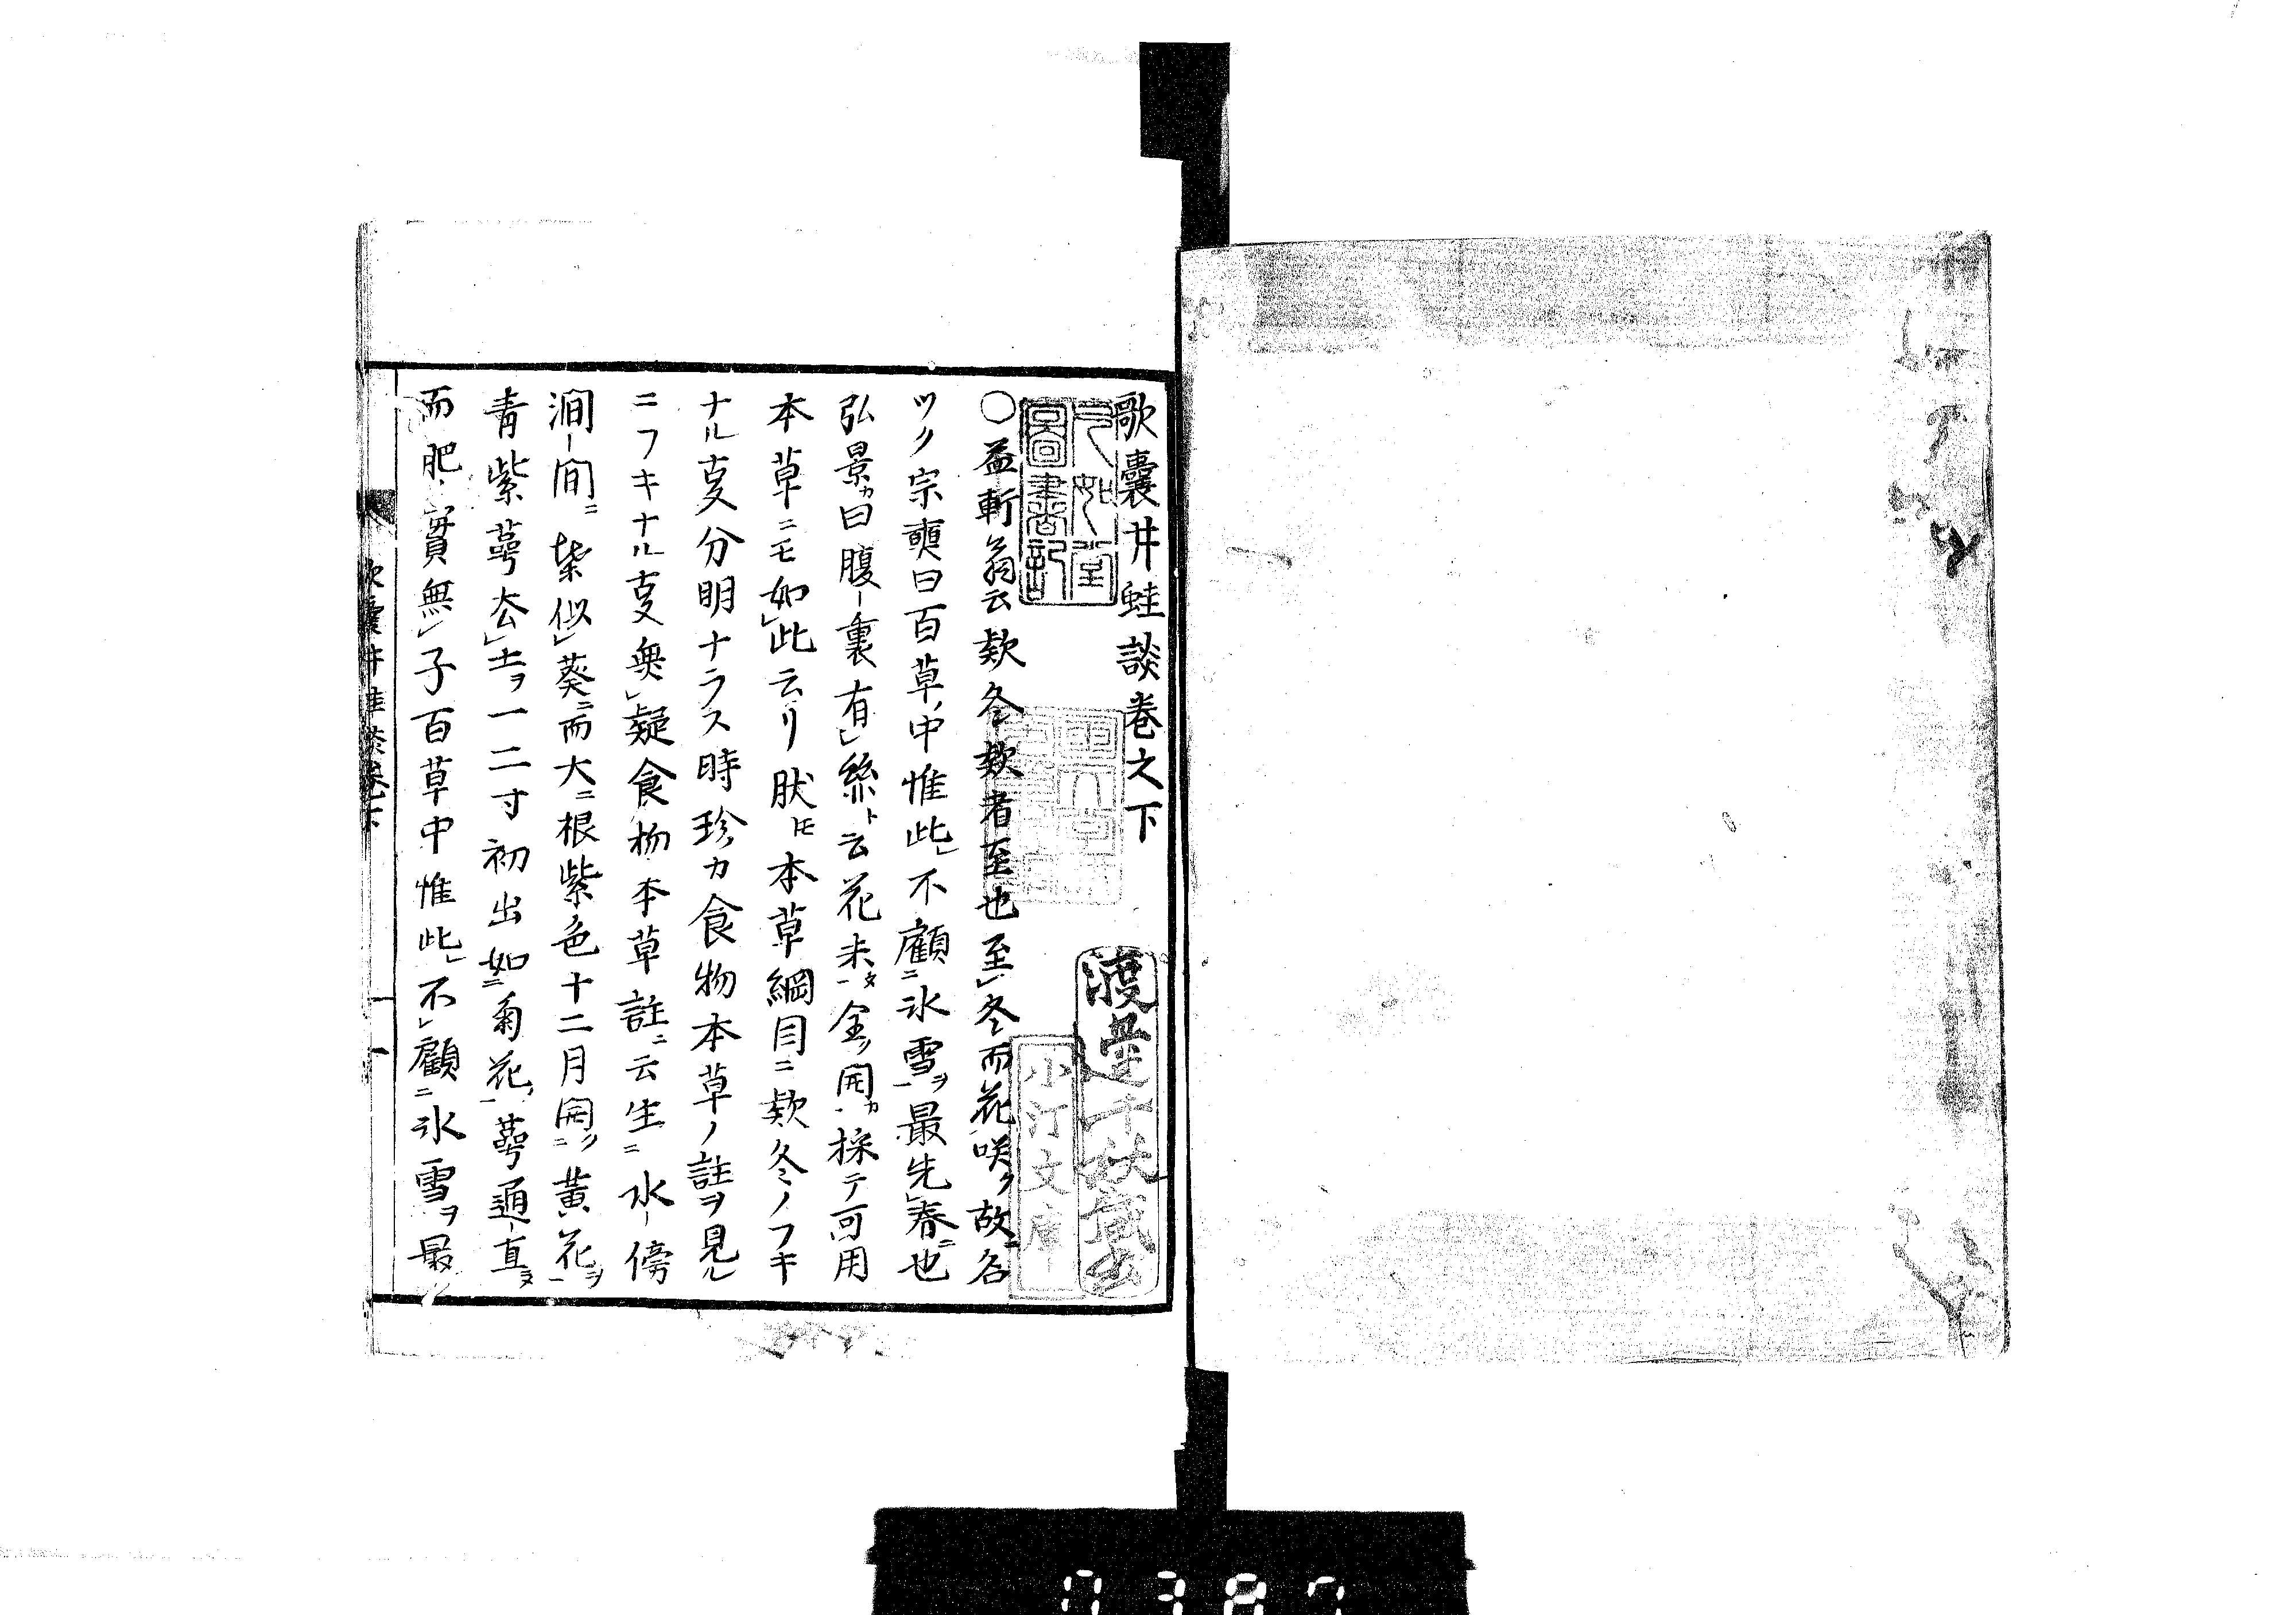 歌嚢井蛙談巻之下
○益軒翁云欵冬欵者至也至冬而花咲ク故ニ名
ツク宗奭曰百草ノ中惟此不顧ニ氷雪ヲ一最先春ニ也
弘景カ曰腹裏有絲ト云花未タ全ク開カ採テ可用
本草ニモ如此云リ肰𪜈本草綱目ニ欵冬ノフキ
ナル叓分明ナラス時珍カ食物本草ノ註ヲ見ル
ニフキナル叓無疑食物本草註ニ云生ニ水傍
澗間ニ葉似葵ニ而大ニ根紫色十二月開ク黄花ヲ
青紫萼去土ヲ一二寸初出如ニ菊花ノ一萼通直
而肥實無子百草中惟此不顧ニ氷雪ヲ最
歌嚢井蛙談巻下
一
圖書記
小汀文庫
0387